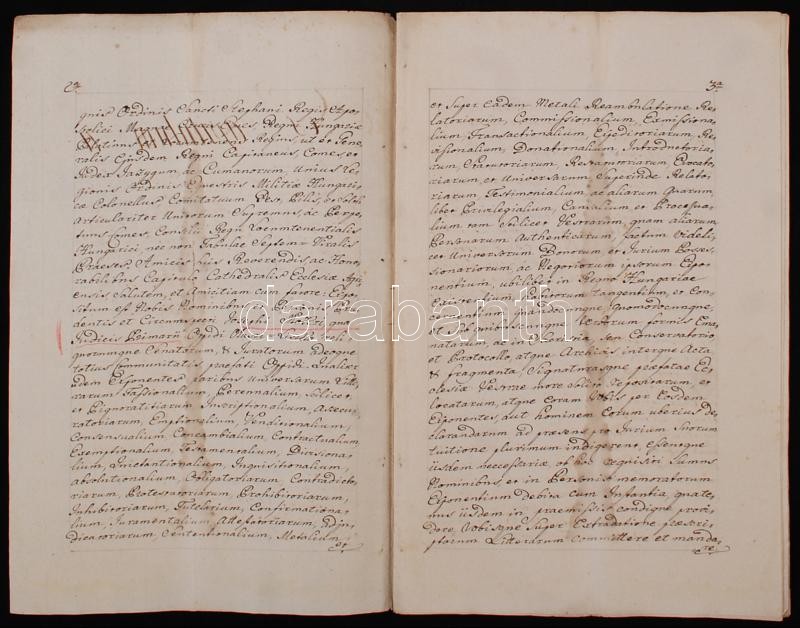 2a
gnis Ordinis Sancti Stephani Regis Apo-
stolici Magnae Crucis Eques, Regni Hungariae
Palatinus Regius, ut et Gene-
ralis Ejusdem Regni Capitaneus, Comes, et
Judex Jazygum, ac Cumanorum, Unius Le-
gionis Ordinis Equestris Militiae Hungari-
cae Colonellus Comitatuum Pest, Pilis, et Solth
Articulariter Unitorum Supremus, ac Perpe-
tuus Comes, Consilii Regii Locumtenentialis
Hungarici, nec non Tabulae Septem-Viralis
Praeses, Amicis suis Reverendis ac Hono-
rabilibus Capitulo Cathedralis Ecclesiae Agri-
ensis, Salutem, et Amicitiam cum favore. Expo-
situm est Nobis Nominibus, et Personis Pru-
dentis et Circumspecti Josephi qua
Judicis Primarii Oppidi
quorumque Senatorum, & Juratorum adeoque
totius Communitatis praefati Oppidi. Qualiter
iidem Exponentes paribus Universarum Litte-
rarum Fassionalium, Perennalium, Scilicet
et Pignoratitiarum Inscriptionalium, Assecu-
ratoriarum, Emptionalium, Venditionalium,
Consensualium Concambialium, Contractualium
Exemptionalium, Testamentalium, Divisiona-
lium, Quietantionalium, Inquisitionalium,
absolutionalium, Obligatoriarum, Contradicto-
riarum, Protestatoriarum, Prohibitoriarum,
Inhibitoriarum, Tutelarium, Confirmationa-
lium, Juramentalium, Attestatoriarum, adju-
dicatoriarum, Sententionalium, Metalium,
et
3a
et Super Eadem Metali Reambulatione Re-
latoriarum, Commissionalium, Exmissiona-
lium, Transactionalium, Expeditoriarum, Re-
Donationalium, Introductoria-
rum, Statutoriarum, Evocato-
riarum, et Universarum Superinde Relato-
riarum, Testimonialium, ac aliarum Quarum-
libet Privilegialium, Causalium et Processua-
lium tam Scilicet Vestrarum, quam aliarum
Personarum Authenticarum, factum videli-
cet Universorum Bonorum et Jurium Posses-
sionariorum, ac Negotiorum ipsorum Expo-
nentium, ubilibet in Regno Hungariae
Existentium Habitorum tangentium, et Con-
cernentium, quandocunque, Quomodocunque,
et Sub quibuscunque Verborum formis Ema-
natarum, ac in Sacristia, seu Conservatorio
et Protocollo, atque Archivis inter que Acta
& fragmenta, Signaturasque praefatae Ec-
clesiae Vestrae more Solito repositarum, et
locatarum, atque coram Vobis per Eosdem
Exponentes, aut hominem Eorum uberius de-
clarandarum ad praesens pro Jurium Suorum
tuitione plurimum indigerent, Essentque
iisdem necessariae, ob hoc requisiti Sumus
Nominibus et in Personis memoratorum
Exponentium debita cum Instantia, quate-
nus iisdem in praemissis condigne provi-
dere, Vobisque Super Extradatione praescri-
ptarum Litterarum Committere et manda-
re
darabanth